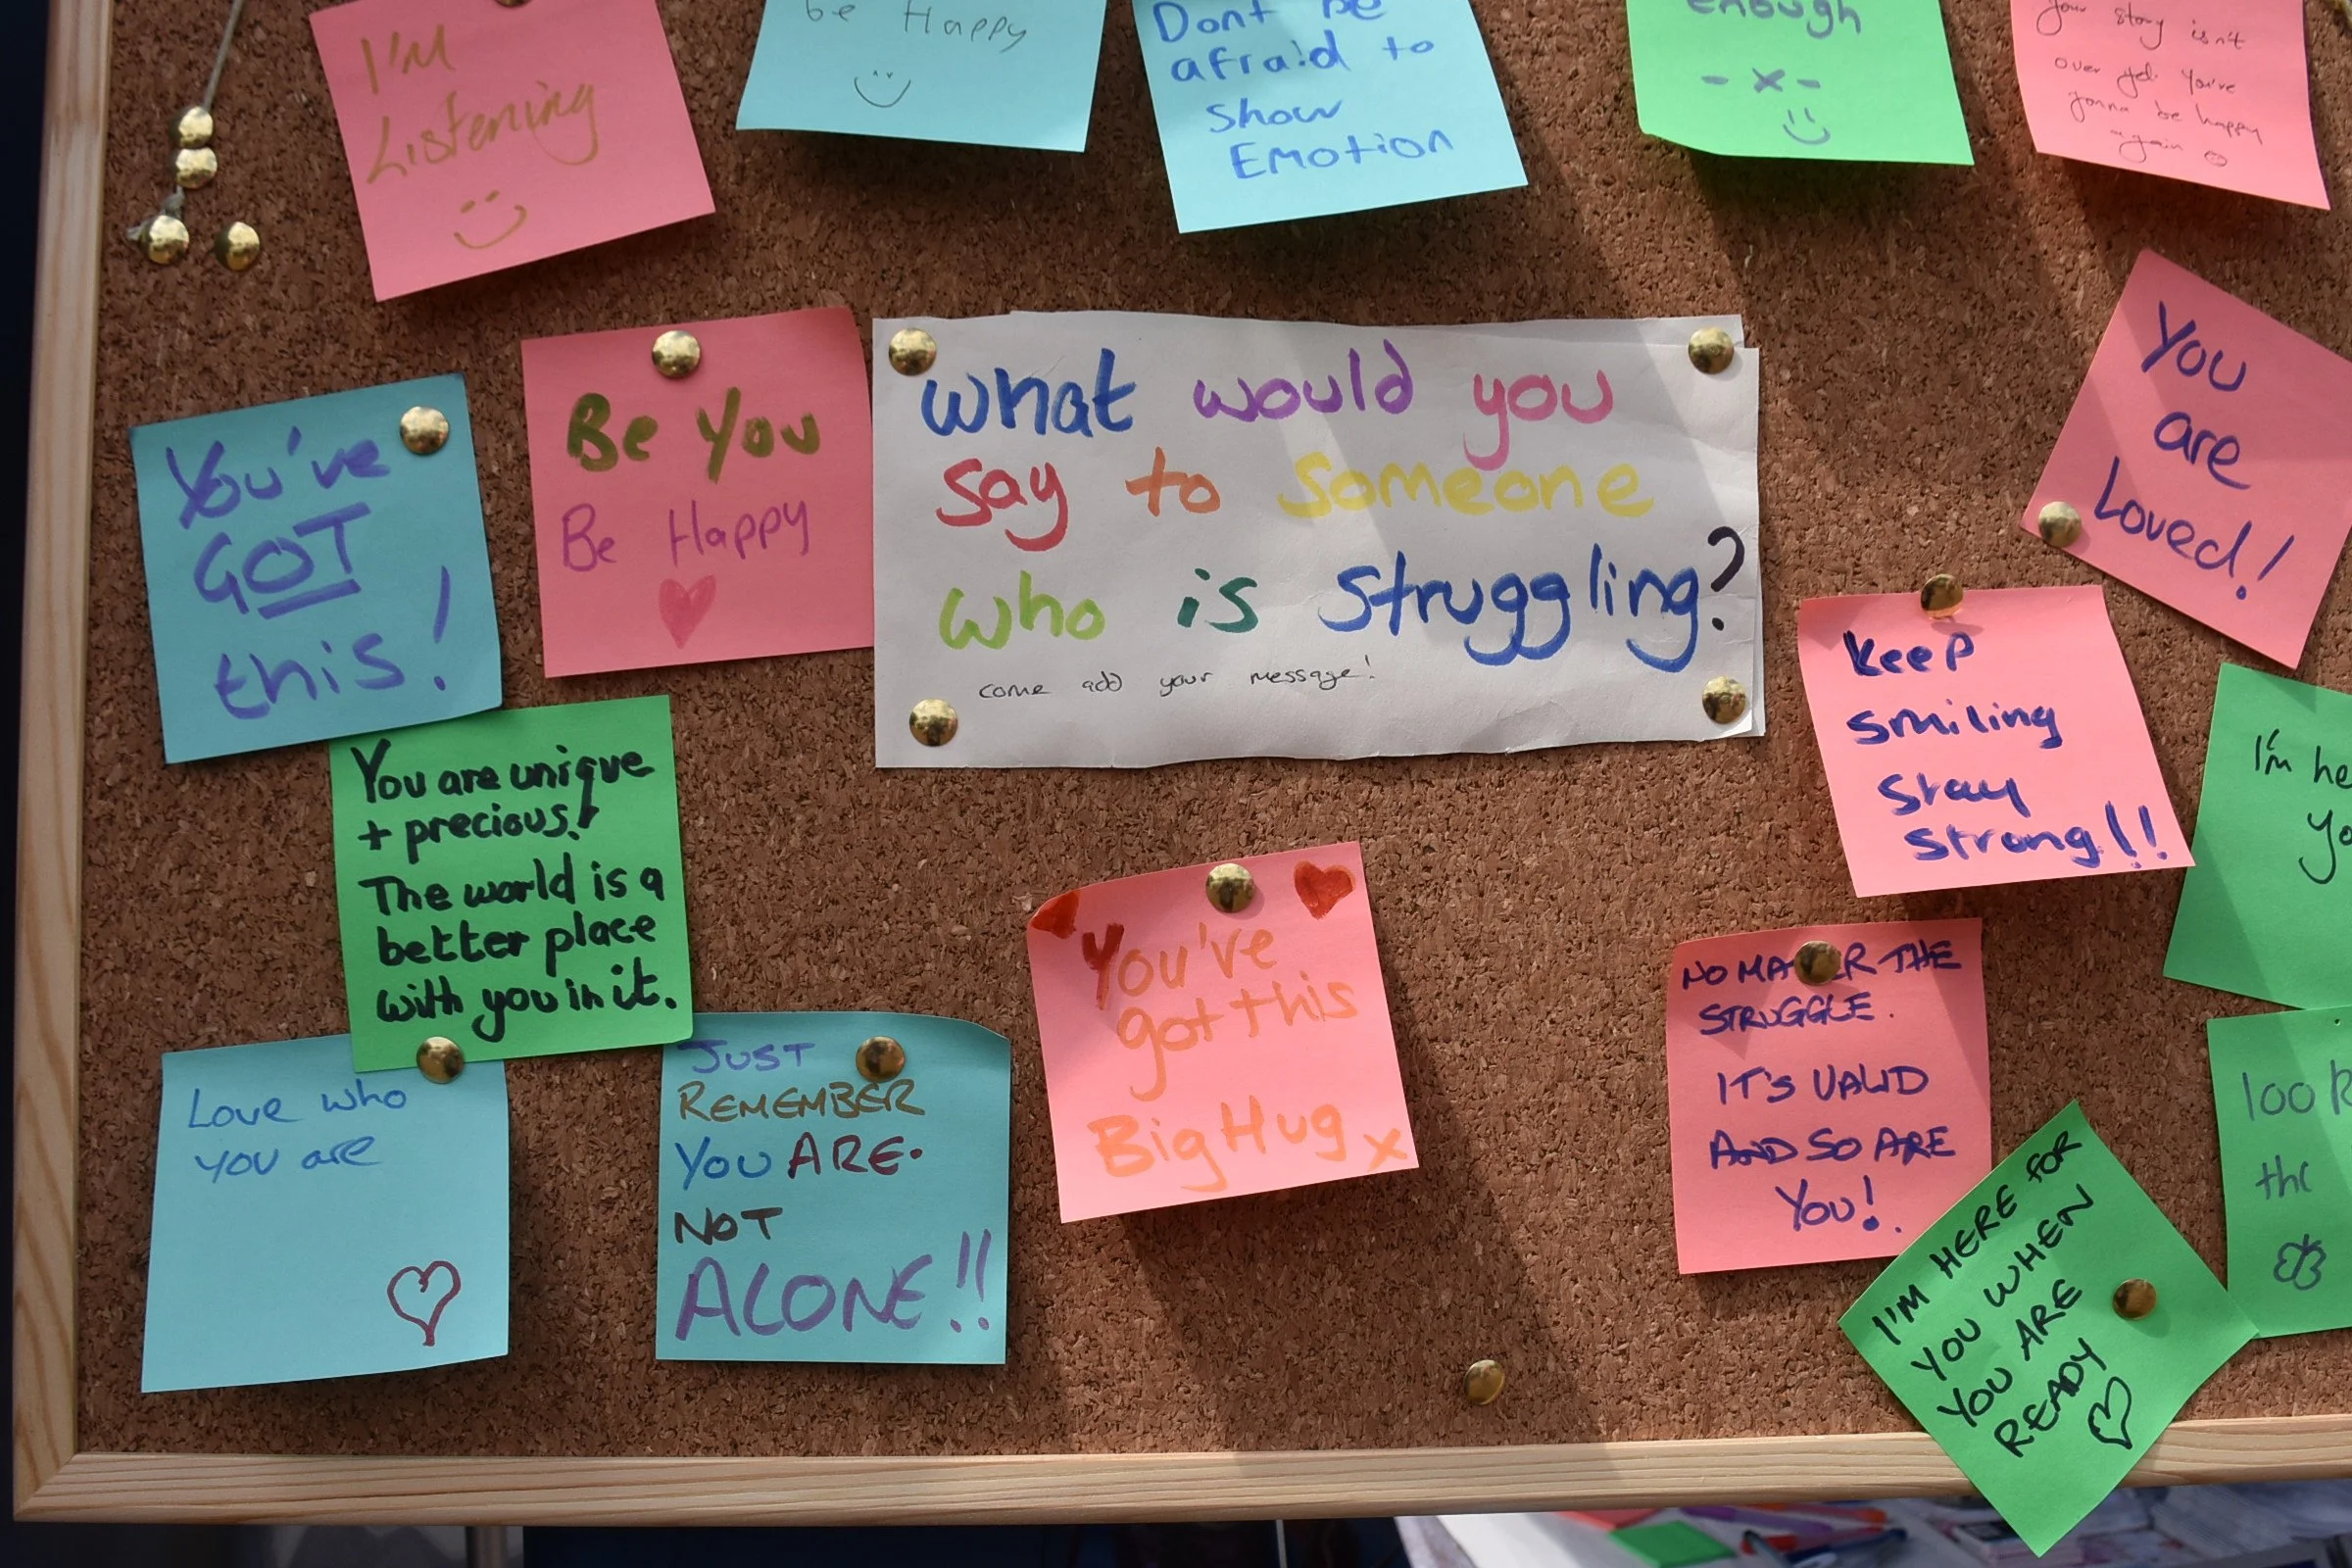 I'M
Listening
be Happy
Dont be
afraid to
show
Emotion
enough
- x -
Your story isn't
over yet. You've
gonna be happy
again
You've
GOT
this!
Be You
Be Happy
what would you
say to someone
who is struggling?
come add your message!
You
are
Loved!
Keep
smiling
Stay
strong!!
You are unique
+ precious!
The world is a
better place
with you in it.
I'm
Love who
you are
JUST
REMEMBER
YOU ARE.
NOT
ALONE!!
You've
got this
Big Hug x
NO MATTER THE
STRUGGLE.
IT'S VALID
AND SO ARE
YOU!
I'M HERE FOR
YOU WHEN
YOU ARE
READY
100